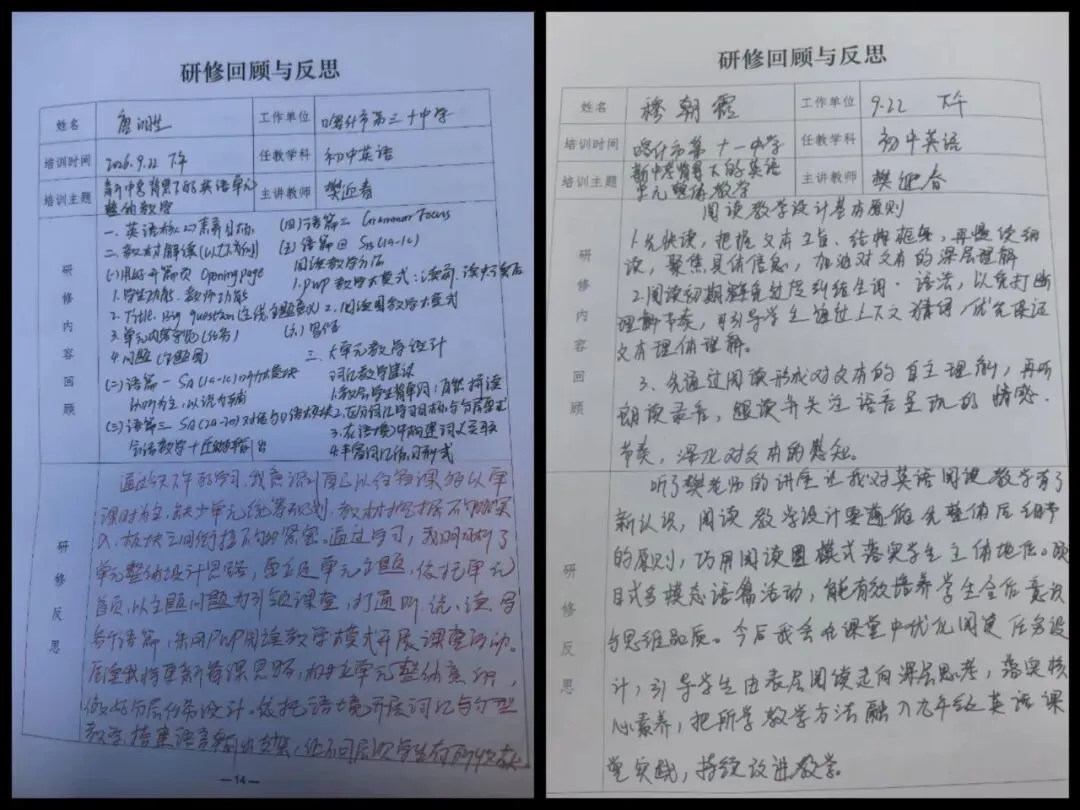 研修回顾与反思
姓名
工作单位 喀什市第三十中学
培训时间 2026.9.22 下午
任教学科 初中英语
培训主题 新中考背景下的英语单元整体教学
主讲教师 樊迎春
研修内容回顾
一、英语核心素养目标
二、教材解读
(一)用好开篇页 Opening page
1.学生功能、教师功能
2. Title. Big question (主线主题意义)
3.单元内容导览(任务)
4.问题(主题图)
(二)语篇一 SA(1a-1c)听力板块
以听为主,以说为辅
(三)语篇二 SA(2a-2d)对话与口语板块
(四)语篇三 Grammar Focus
(五)语篇四 SB(1a-1c)
阅读教学方法
1.PWP教学大模式:读前、读中、读后
2.阅读圈教学大模式
(六)写作
三、大单元教学设计
词汇教学建议
1.教会学生背单词:自然拼读
2.区分词汇学习目标与分层要求
3.在语境中构建词义关联
4.丰富词汇练习形式
研修反思
通过今天下午的学习,我意识到自己以往备课多以单
课时为主,缺少单元统筹规划,教材挖掘不够深
入,板块之间衔接不够紧密。通过学习,我明晰了
单元整体设计思路,要立足单元主题,依托单元
首页,以主题问题为引领课堂,打通听、说、读、写
各个语篇,采用PWP阅读教学模式开展课堂活动。
后续我将更新备课思路,树立单元整体意识,
做好分层任务设计。依托语境开展词汇与句型
教学,搭建语言输出支架,让不同层次学生有所收获
—14—
研修回顾与反思
姓名 穆朝霞
工作单位 9.22 下午
培训时间 喀什市第十一中学
任教学科 初中英语
培训主题 新中考背景下的英语单元整体教学
主讲教师 樊迎春
研修内容回顾
阅读教学设计基本原则
1.先快读,把握文本主旨、结构框架,再慢读细
读,聚焦具体信息,加深对文本的深层理解
2.阅读初期避免过度纠结生词、语法,以免打断
理解节奏,可引导学生通过上下文猜词,优先保证
文本整体理解。
3、先通过阅读形成对文本的自主理解,再听
朗读录音,跟读并关注语音呈现的情感、
节奏,深化对文本的感知。
研修反思
听了樊老师的讲座让我对英语阅读教学有了
新认识,阅读教学设计要遵循先整体后细节
的原则,巧用阅读圈模式落实学生主体地位。项
目式多模态语篇活动,能有效培养学生合作意识
与思维品质。今后我会在课堂中优化阅读任务设
计,引导学生由表层阅读走向深层思考,落实核
心素养,把所学教学方法融入九年级英语课
堂实践,持续改进教学。